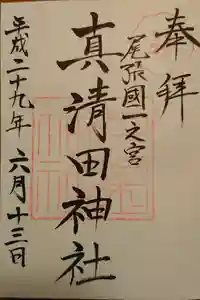 奉拝
尾張國一之宮
真清田神社
平成二十九年 六月十三日